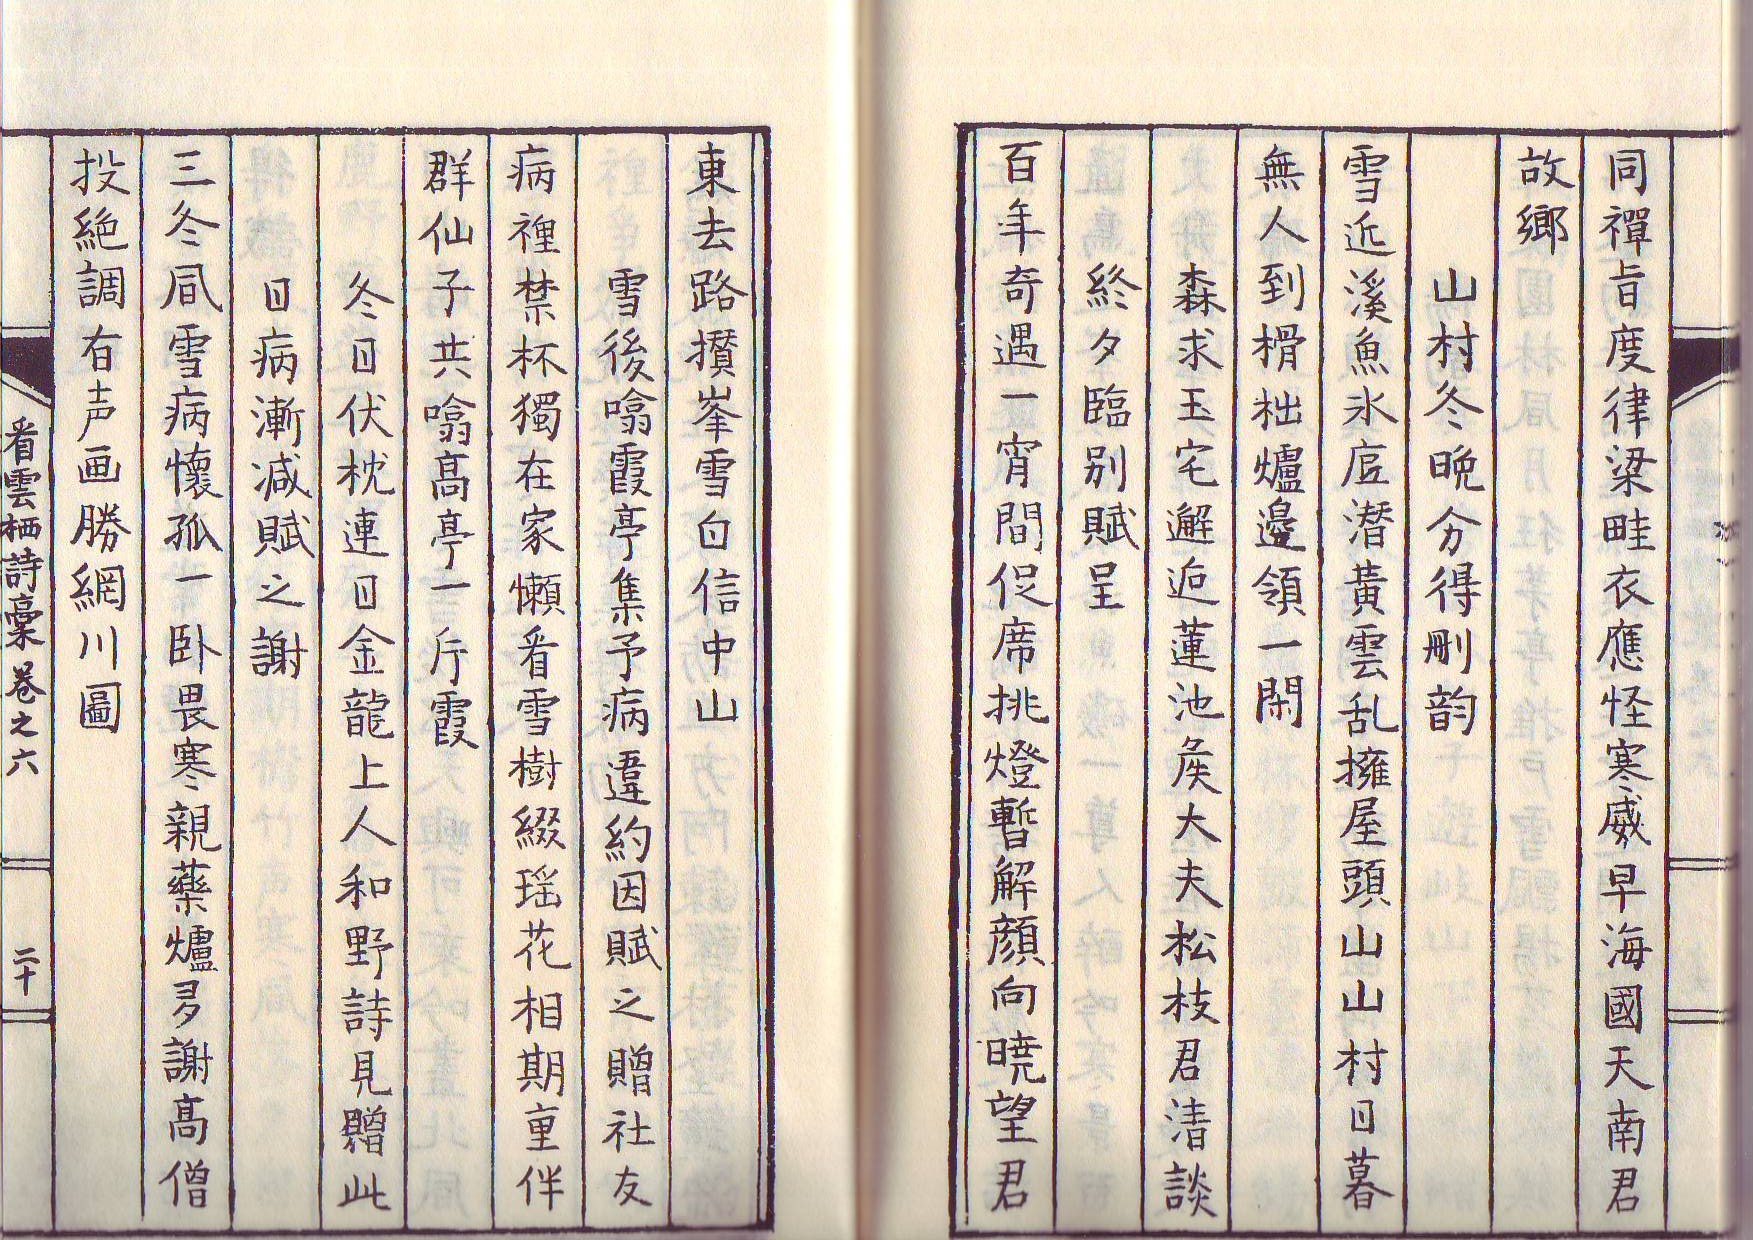 同禪旨度律梁畦衣應怪寒威早海國天南君
故鄉
山村冬晚分得刪韵
雪近溪魚氷底潜黃雲乱擁屋頭山山村日暮
無人到榾柮爐邊領一閑
森求玉宅邂逅蓮池矦大夫松枝君清談
終夕臨別賦呈
百年奇遇一宵間促席挑燈暫解顔向曉望君
東去路攅峯雪白信中山
雪後噏霞亭集予病違約因賦之贈社友
病裡禁杯獨在家懶看雪樹綴瑶花相期重伴
群仙子共噏高亭一片霞
冬日伏枕連日金龍上人和野詩見贈此
日病漸减賦之謝
三冬風雪病懷孤一卧畏寒親藥爐多謝高僧
投絶調有声画勝網川圖
看雲栖詩稾卷之六
二十